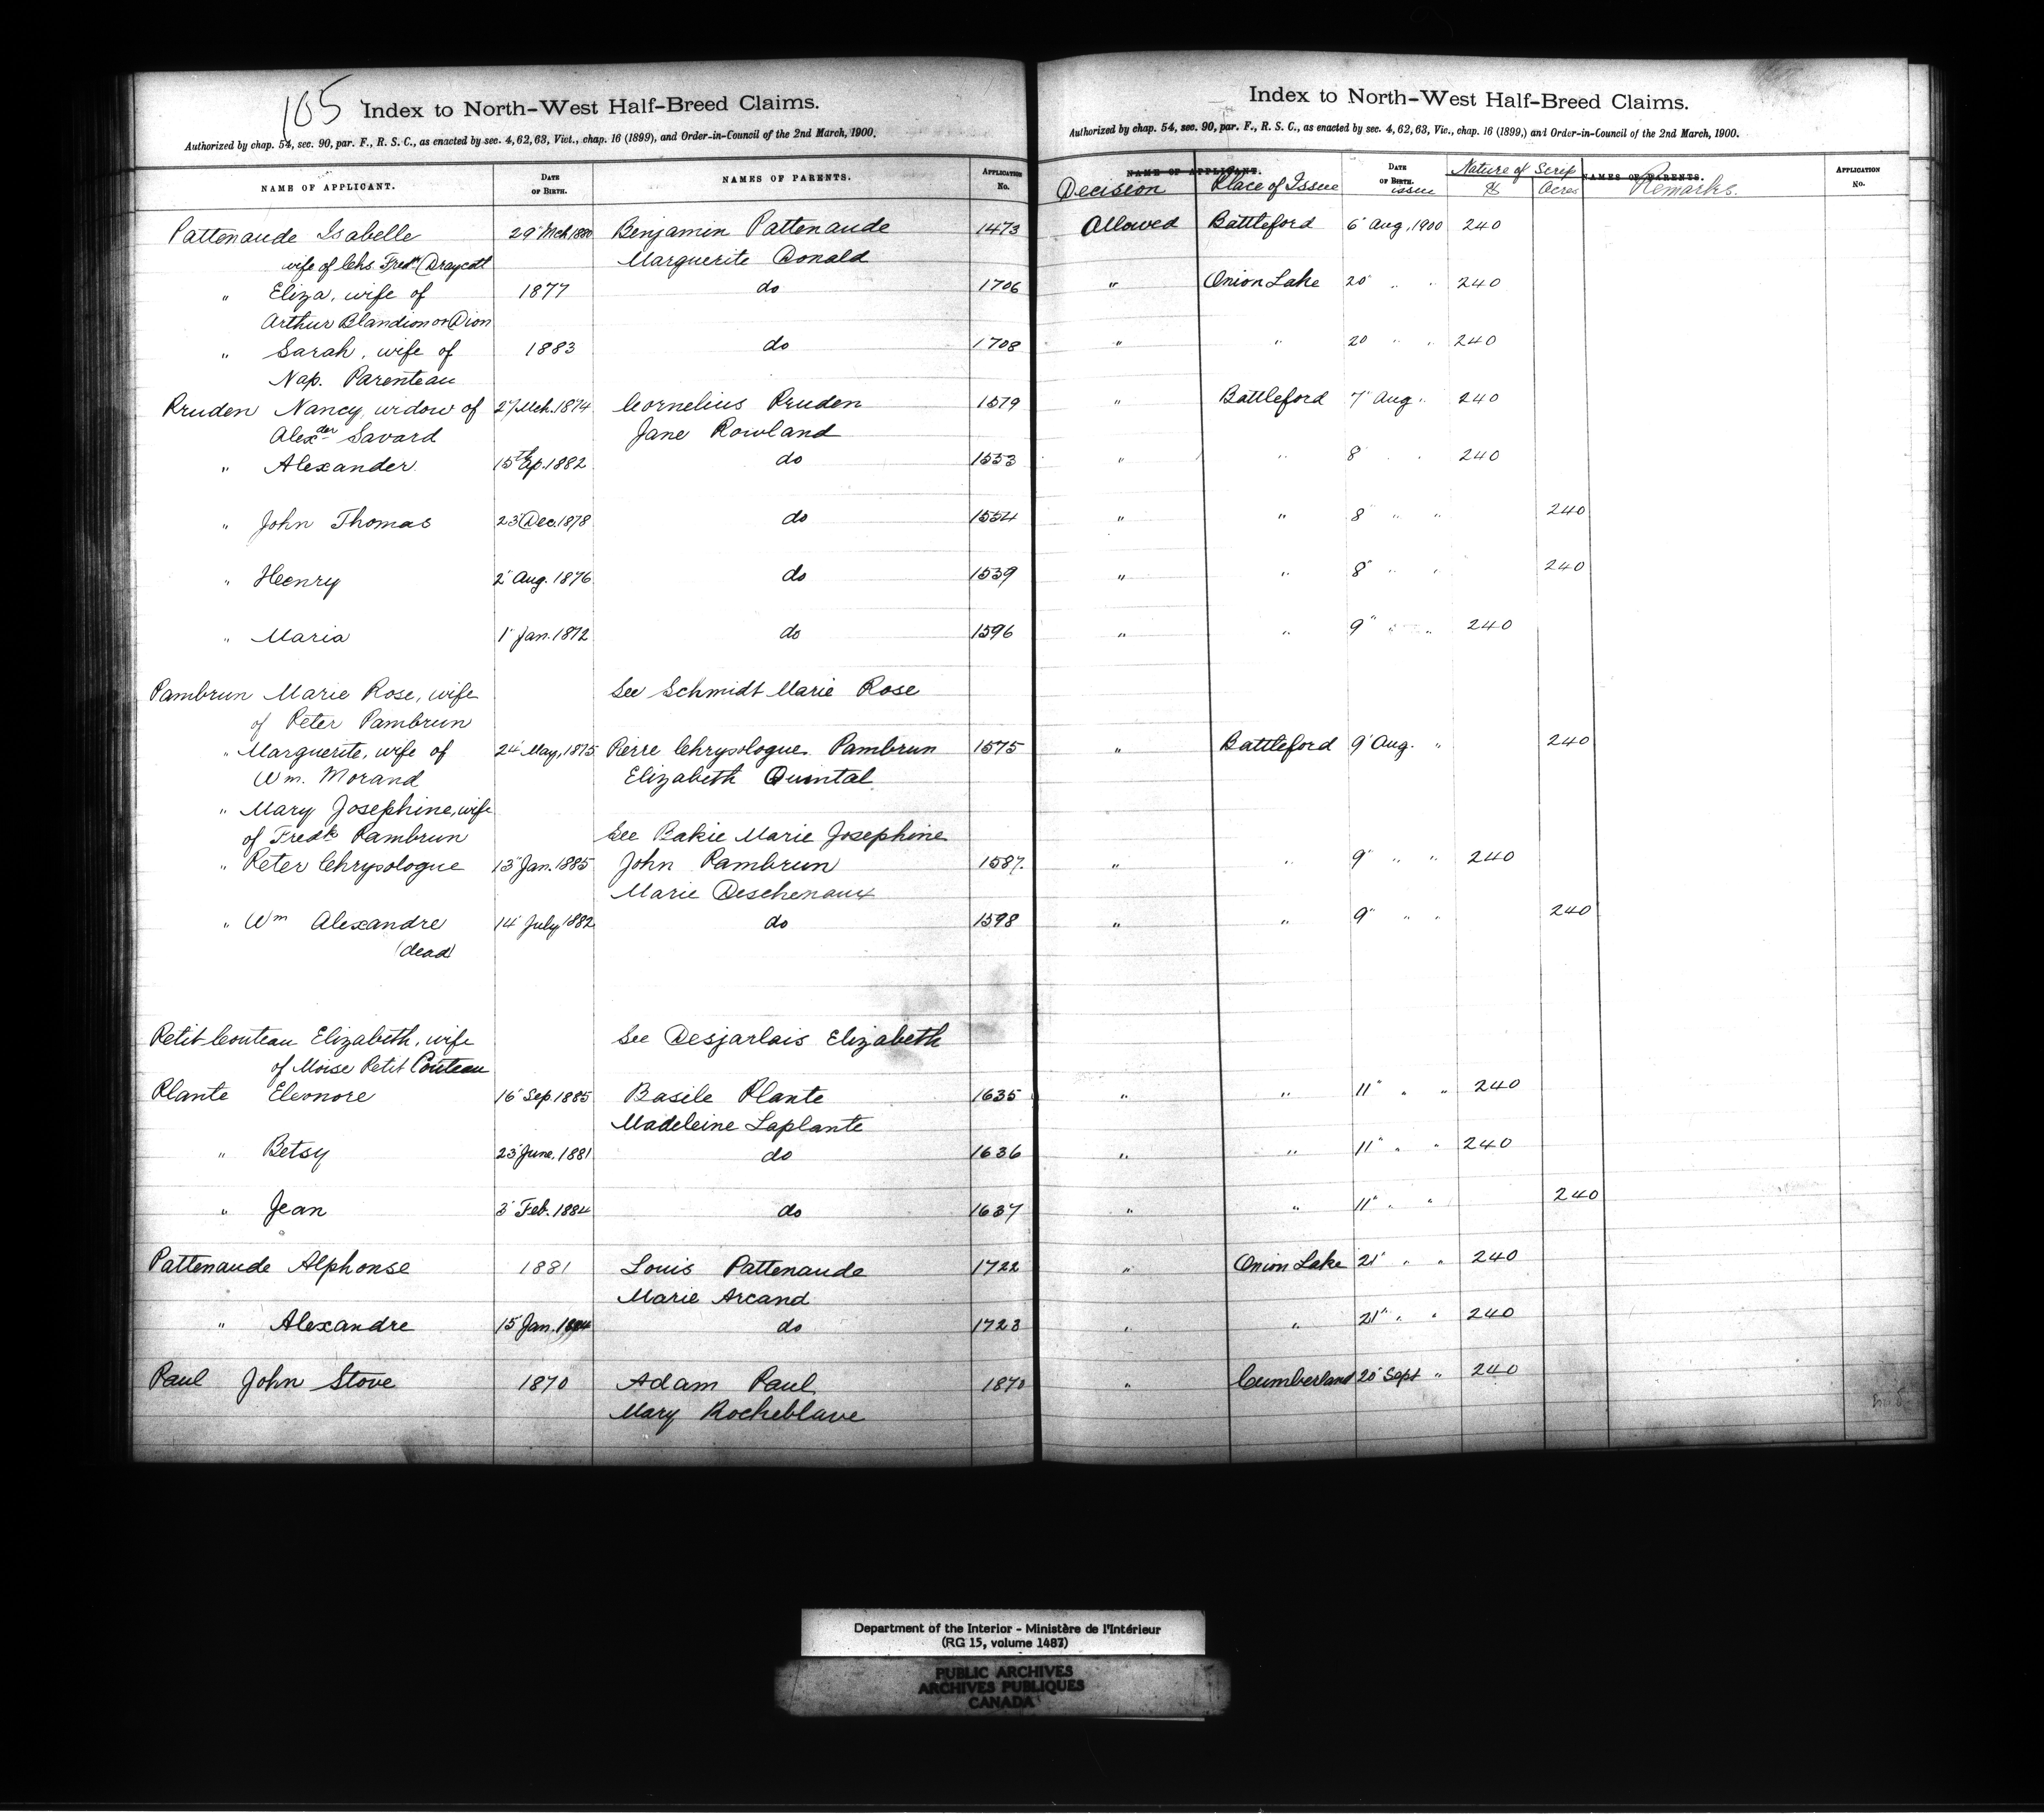 105 Index to North-West Half-Breed Claims.
Authorized by chap. 54, sec. 90, par. F., R. S. C., as enacted by sec. 4, 62, 63, Vict., chap. 16 (1899), and Order-in-Council of the 2nd March, 1900.
NAME OF APPLICANT. DATE OF BIRTH. NAMES OF PARENTS. APPLICATION No.
Pattenaude Isabelle 29" Mch 1880 Benjamin Pattenaude 1473
wife of Chs. Fredk Draycott Marguerite Donald
" Eliza, wife of 1877 do 1706
Arthur Blandion or Dion
" Sarah, wife of 1883 do 1708
Nap. Parenteau
Pruden Nancy, widow of 27 Mch. 1874 Cornelius Pruden 1579
Alexder Savard Jane Rowland
" Alexander 15th Ap. 1882 do 1553
" John Thomas 23" Dec. 1878 do 1554
" Henry 2" Aug. 1876 do 1539
" Maria 1" Jan. 1872 do 1596
Pambrun Marie Rose, wife See Schmidt Marie Rose
of Peter Pambrun
" Marguerite, wife of 24" May, 1875 Pierre Chrysologue Pambrun 1575
Wm. Morand Elizabeth Quintal
" Mary Josephine, wife
of Fredk Pambrun See Bakie Marie Josephine
" Peter Chrysologue 13" Jan. 1885 John Pambrun 1587
Marie Deschenaux
" Wm Alexandre 14" July, 1882 do 1598
(dead)
Petit Couteau Elizabeth, wife See Desjarlais Elizabeth
of Moise Petit Couteau
Plante Eleonore 16" Sep. 1885 Basile Plante 1635
Madeleine Laplante
" Betsy 23" June, 1881 do 1636
" Jean 3" Feb. 1884 do 1637
Pattenaude Alphonse 1881 Louis Pattenaude 1722
Marie Arcand
" Alexandre 15" Jan. do 1723
Paul John Stove 1870 Adam Paul 1870
Mary Rocheblave
Index to North-West Half-Breed Claims.
Authorized by chap. 54, sec. 90, par. F., R. S. C., as enacted by sec. 4, 62, 63, Vic., chap. 16 (1899,) and Order-in-Council of the 2nd March, 1900.
NAME OF APPLICANT. DATE OF BIRTH. Nature of Scrip NAMES OF PARENTS. APPLICATION No.
Decision Place of Issue issue $ Acres Remarks.
Allowed Battleford 6" Aug, 1900 240
" Onion Lake 20" " " 240
" " 20 " " 240
" Battleford 7" Aug " 240
" " 8" " " 240
" " 8" " " 240
" " 8" " " 240
" " 9" " " 240
" Battleford 9" Aug. " 240
" " 9" " " 240
" " 9" " " 240
" " 11" " " 240
" " 11" " " 240
" " 11" " " 240
" Onion Lake 21" " " 240
" " 21" " " 240
" Cumberland 20" Sept " 240
Department of the Interior - Ministère de l'Intérieur
(RG 15, volume 1487)
PUBLIC ARCHIVES
ARCHIVES PUBLIQUES
CANADA